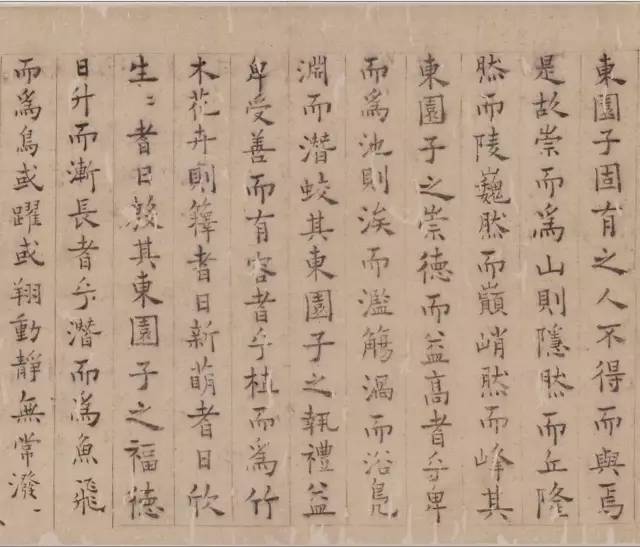 東園子固有之人不得而與焉
是故崇而為山則隱然而丘隆
然而陵巍然而巔峭然而峰其
東園子之崇德而益高者乎卑
而為池則涘而濫觴渦而浴鳧
淵而潛蛟其東園子之執禮益
卑受善而有容者乎而為竹
木花卉則籜者日新萌者日欣
生〻者日其東園子之福德
日升而漸長者乎潛而為魚飛
而為鳥或躍或翔動靜無常潑〻